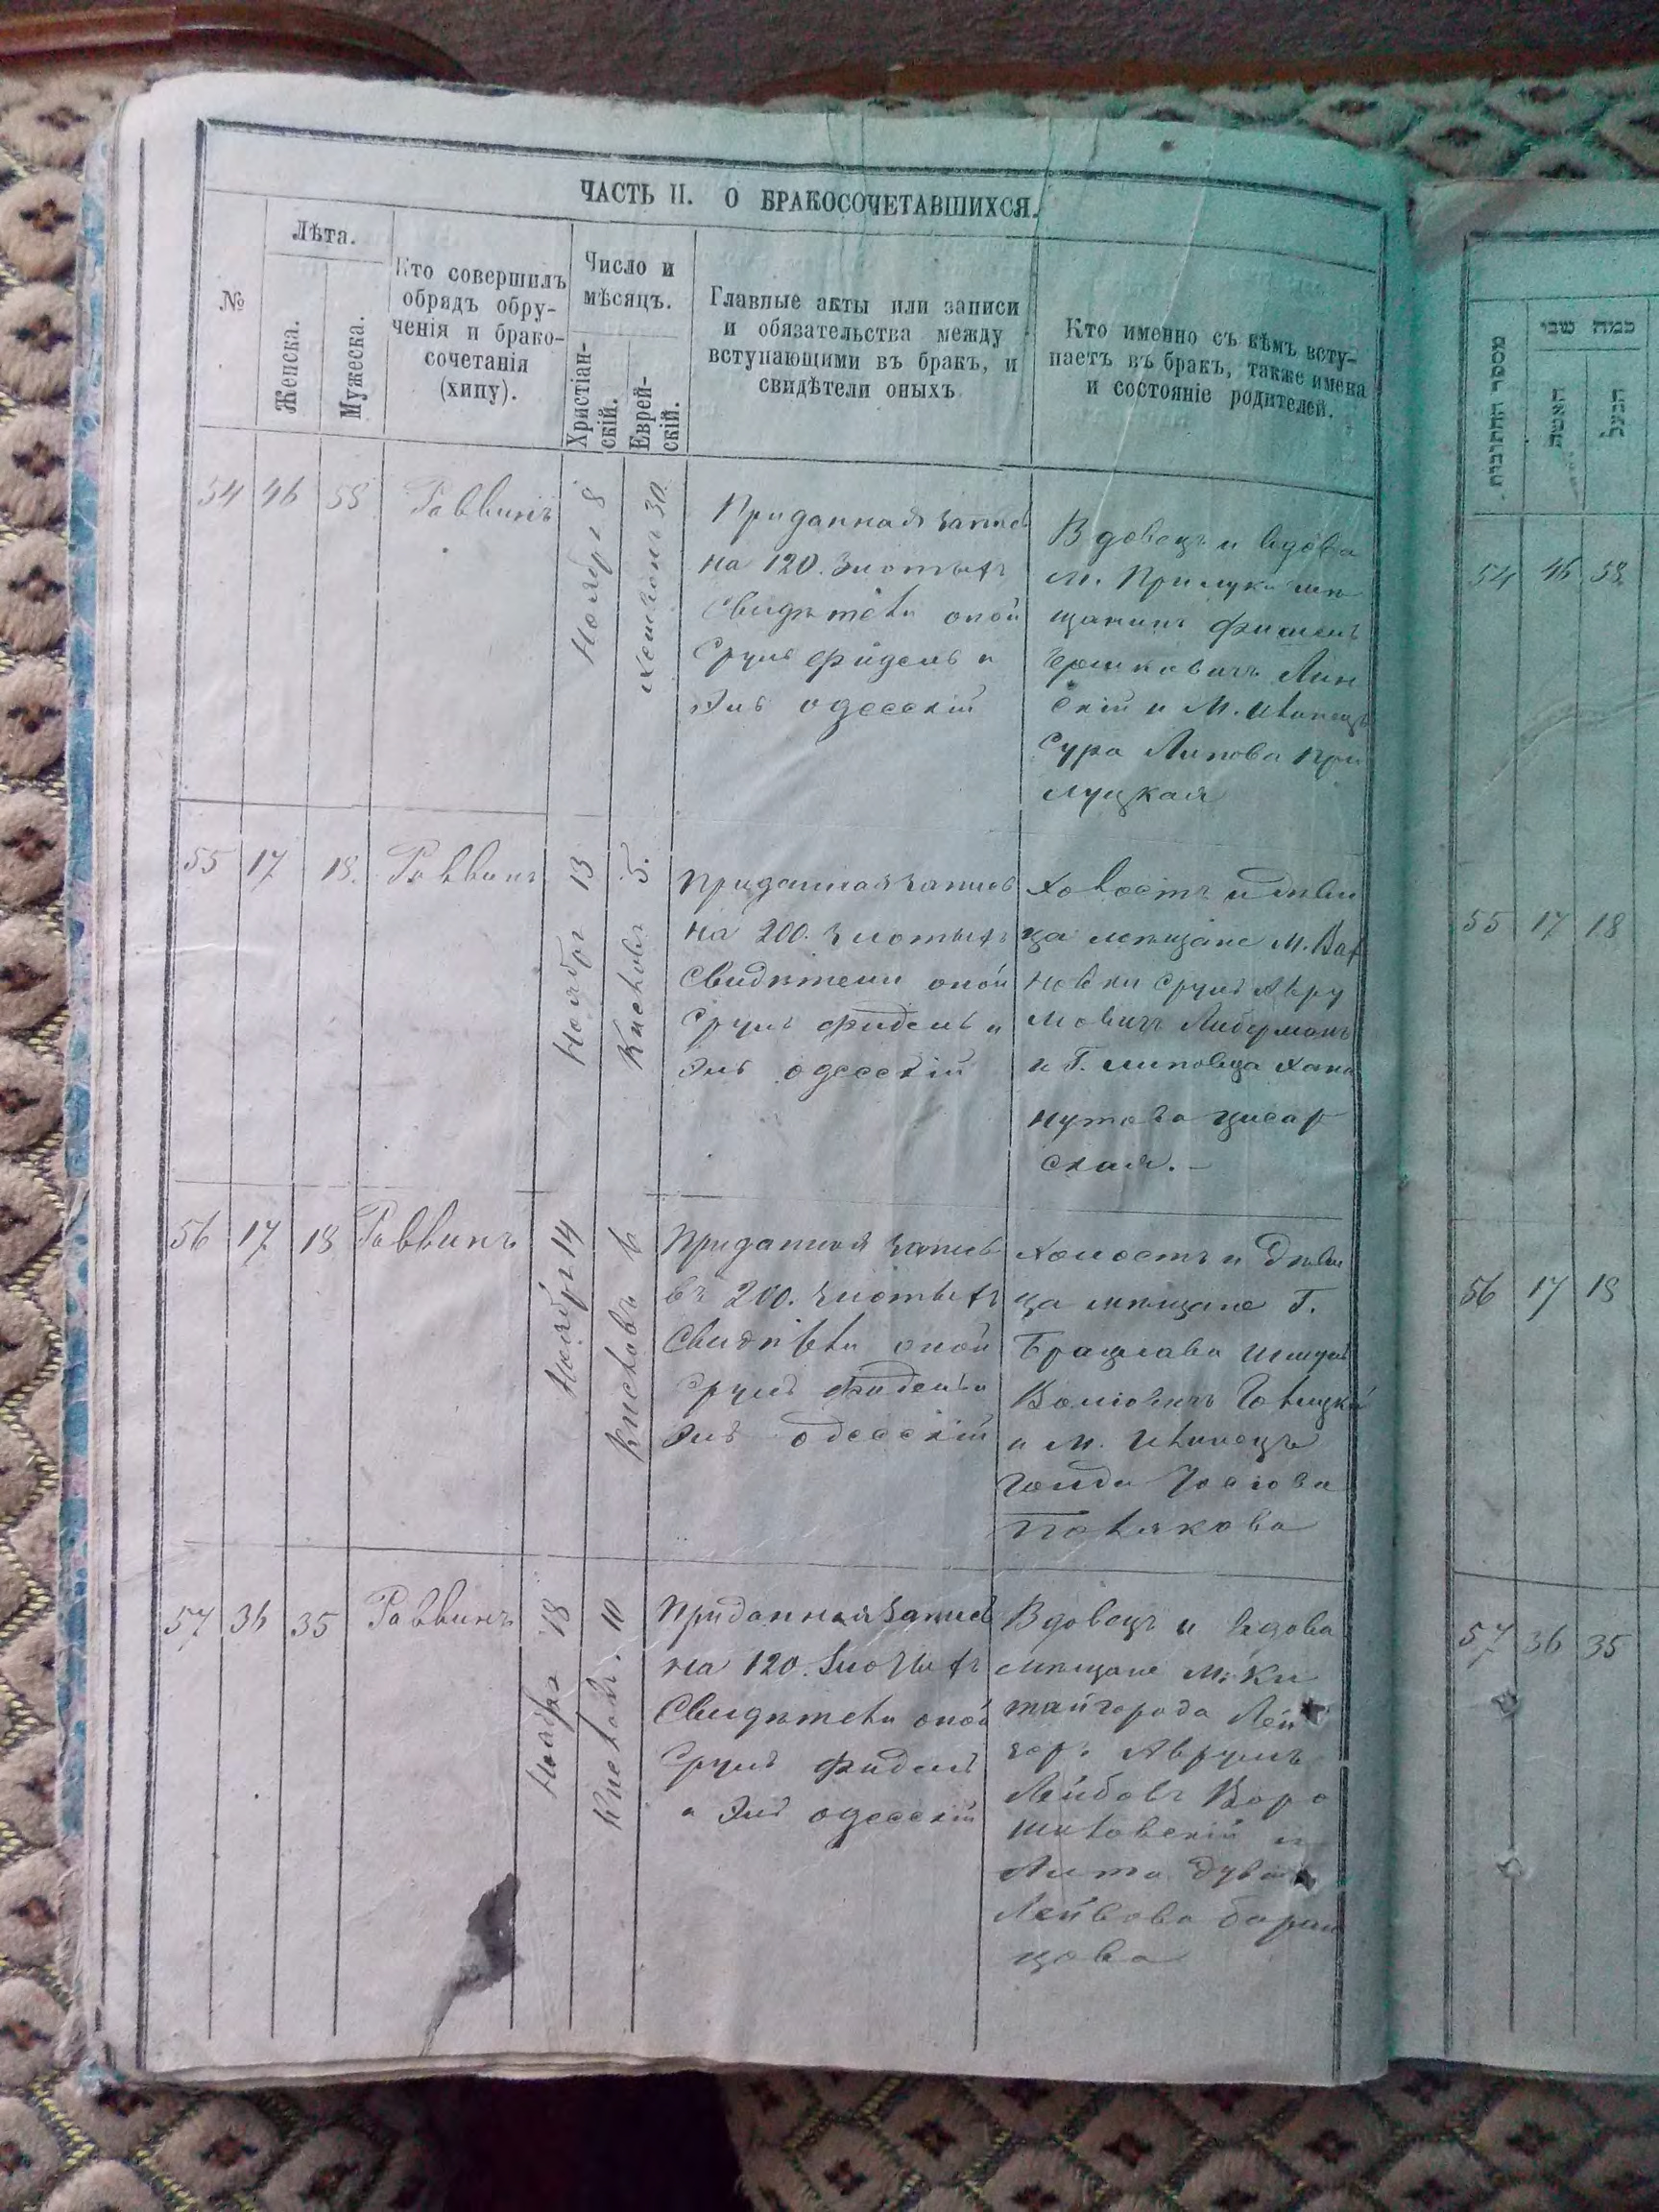 ЧАСТЬ II. О БРАКОСОЧЕТАВШИХСЯ.
№
Лѣта.
Женска.
Мужеска.
Кто совершилъ
обрядъ обру-
ченія и брако-
сочетанія
(хипу).
Число и
мѣсяцъ.
Христіан-
скій.
Еврей-
скій.
Главные акты или записи
и обязательства между
вступающими въ бракъ, и
свидѣтели оныхъ
Кто именно съ кѣмъ всту-
паетъ въ бракъ, также имена
и состояніе родителей.
54 46 58 Раввинъ
Ноября 8
30
Приданная запись
на 120. злотыхъ
Свидѣтели оной
Сруль Фидель и
Эль Одесскій
Вдовецъ и вдова
м. Прилуки мѣ
щанинъ
скій и М. Илинецъ
Сура Липова При
луцкая
55 17 18. Раввинъ
Ноября 13
Кислова 5.
Приданная запись
на 200. злотыхъ
Свидѣтели оной
Сруль Фидель и
Эль Одесскій
Холостъ и дѣви
ца мѣщане М. Вах
новки Сруль Авру
мовичъ Либерманъ
и Г. Липовца Хана
Нутова Цисар
ская. –
56 17 18 Раввинъ
Ноября 14
Кислова 6
Приданная запись
въ 200. злотыхъ
Свидѣтели оной
Сруль Фидель и
Эль Одесскій
Холостъ и Дѣви
ца мѣщане Г.
Брацлава Шмуль
и М. Илинецъ
Голда Іослова
Полякова
57 36 35 Раввинъ
Ноября 18
10
Приданная запись
на 120. злотыхъ
Свидѣтели оной
Сруль Фидель
и Эль Одесскій
Вдовецъ и вдова
мѣщане М. Ки
тайгорода Лей
зоръ Аврумъ
Лейбовъ Воро
шиловскій и
Лейбова
цова
מספר החתונות
כמה שני
האשה
הבעל
54 46 58
55 17 18
56 17 18
57 36 35